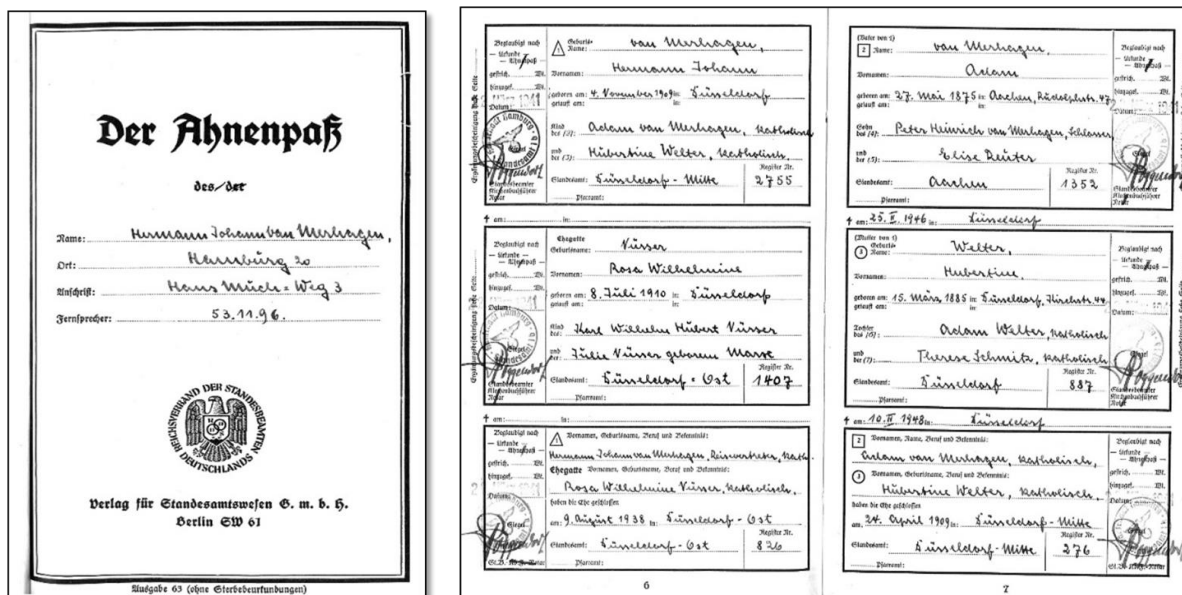 Der Ahnenpaß
des/der
Name: Hermann Johann van Merhagen,
Ort: Hamburg 20
Anschrift: Hans Much-Weg 3
Fernsprecher: 53.11.96.
REICHSVERBAND DER STANDESBEAMTEN DEUTSCHLANDS
Verlag für Standesamtswesen G. m. b. H.
Berlin SW 61
Ausgabe 63 (ohne Sterbebeurkundungen)
Beglaubigt nach
— Urkunde
— Ahnenpaß
Datum:
Siegel
Standesbeamter
Kirchenbuchführer
Notar
1 Geburts-Name: van Merhagen,
Vornamen: Hermann Johann
geboren am: 4. November 1909 in: Düsseldorf
getauft am: in:
Kind des (2): Adam van Merhagen, katholisch
und der (3): Hubertine Welter, katholisch.
Standesamt: Düsseldorf-Mitte Register Nr. 2755
Pfarramt:
† am: in:
Beglaubigt nach
— Urkunde
— Ahnenpaß
Datum:
Ehegatte
Geburtsname: Nüsser
Vornamen: Rosa Wilhelmine
geboren am: 8. Juli 1910 in: Düsseldorf
getauft am: in:
Kind des: Karl Wilhelm Hubert Nüsser
und der: Julie Nüsser geborene Masse
Standesamt: Düsseldorf-Ost Register Nr. 1407
Pfarramt:
† am: in:
Beglaubigt nach
— Urkunde
— Ahnenpaß
Datum:
Siegel
1 Vornamen, Geburtsname, Beruf und Bekenntnis:
Hermann Johann van Merhagen, Reisevertreter, kath.
Ehegatte Vornamen, Geburtsname, Beruf und Bekenntnis:
Rosa Wilhelmine Nüsser, katholisch.
haben die Ehe geschlossen
am: 9. August 1938 in: Düsseldorf-Ost
Standesamt: Düsseldorf-Ost Register Nr. 826
Pfarramt:
6
(Vater von 1)
2 Name: van Merhagen,
Vornamen: Adam
geboren am: 27. Mai 1875 in: Aachen, Rudolphstr. 47
getauft am: in:
Sohn des (4): Peter Heinrich van Merhagen, Schlosser
und der (5): Elise Reuter
Standesamt: Aachen Register Nr. 1352
Pfarramt:
† am: 25. II. 1946 in: Düsseldorf
(Mutter von 1)
3 Geburts-Name: Welter,
Vornamen: Hubertine.
geboren am: 15. März 1885 in: Düsseldorf, Kirchstr. 44
getauft am: in:
Tochter des (6): Adam Welter, katholisch
und der (7): Therese Schmitz, katholisch
Standesamt: Düsseldorf Register Nr. 887
Pfarramt:
† am: 10. II. 1948 in: Düsseldorf
2 Vornamen, Name, Beruf und Bekenntnis:
Adam van Merhagen, katholisch,
3 Vornamen, Geburtsname, Beruf und Bekenntnis:
Hubertine Welter, katholisch,
haben die Ehe geschlossen
am: 24. April 1909 in: Düsseldorf-Mitte
Standesamt: Düsseldorf-Mitte Register Nr. 276
Pfarramt:
7